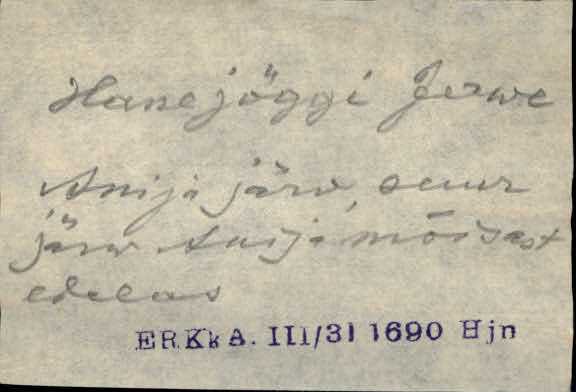 Hanejöggi Jerwe
Anija järv, suur
järw Anija mõisast
edelas
ERKkA. III/31 1690 Hjn